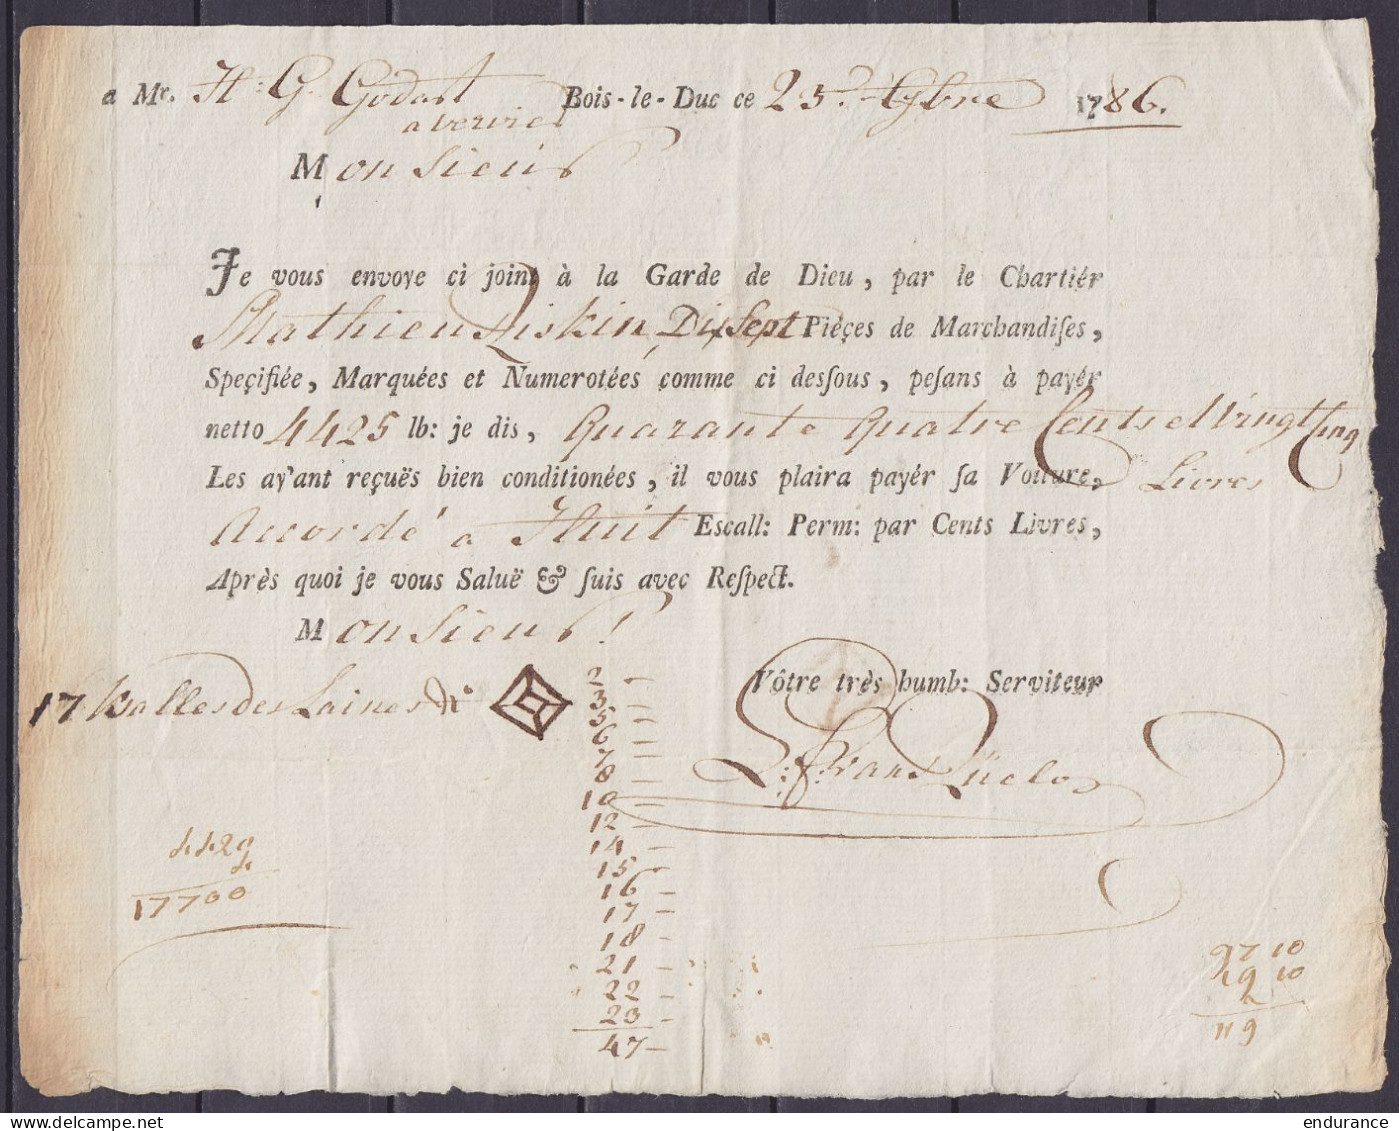 a Mr. H: G. Godart Bois-le-Duc ce 25.e 1786.
a vervie
Monsieur
Je vous envoye ci joint à la Garde de Dieu, par le Chartiér
Mathieu Liskin, Dix Sept Piéçes de Marchandiſes,
Speçifiée, Marquées et Numerotées çomme ci deſſous, peſans à payér
netto 4425 lb: je dis, Quarante Quatre Cents et Vingt Cinq
Livres
Les ay'ant reçuës bien conditionées, il vous plaira payér ſa Voiture,
Accordé a Huit Escall: Perm: par Cents Livres,
Après quoi je vous Saluë & ſuis avec Reſpect.
Monsieur!
Vôtre très humb: Serviteur
17 Balles des Laines No
2 —
3 —
5 —
6 —
7 —
8 —
10 —
12 —
14 —
15 —
16 —
17 —
18 —
21 —
22 —
23 —
47 —
4425
4
17700
97 10
19 10
2
119
endurance